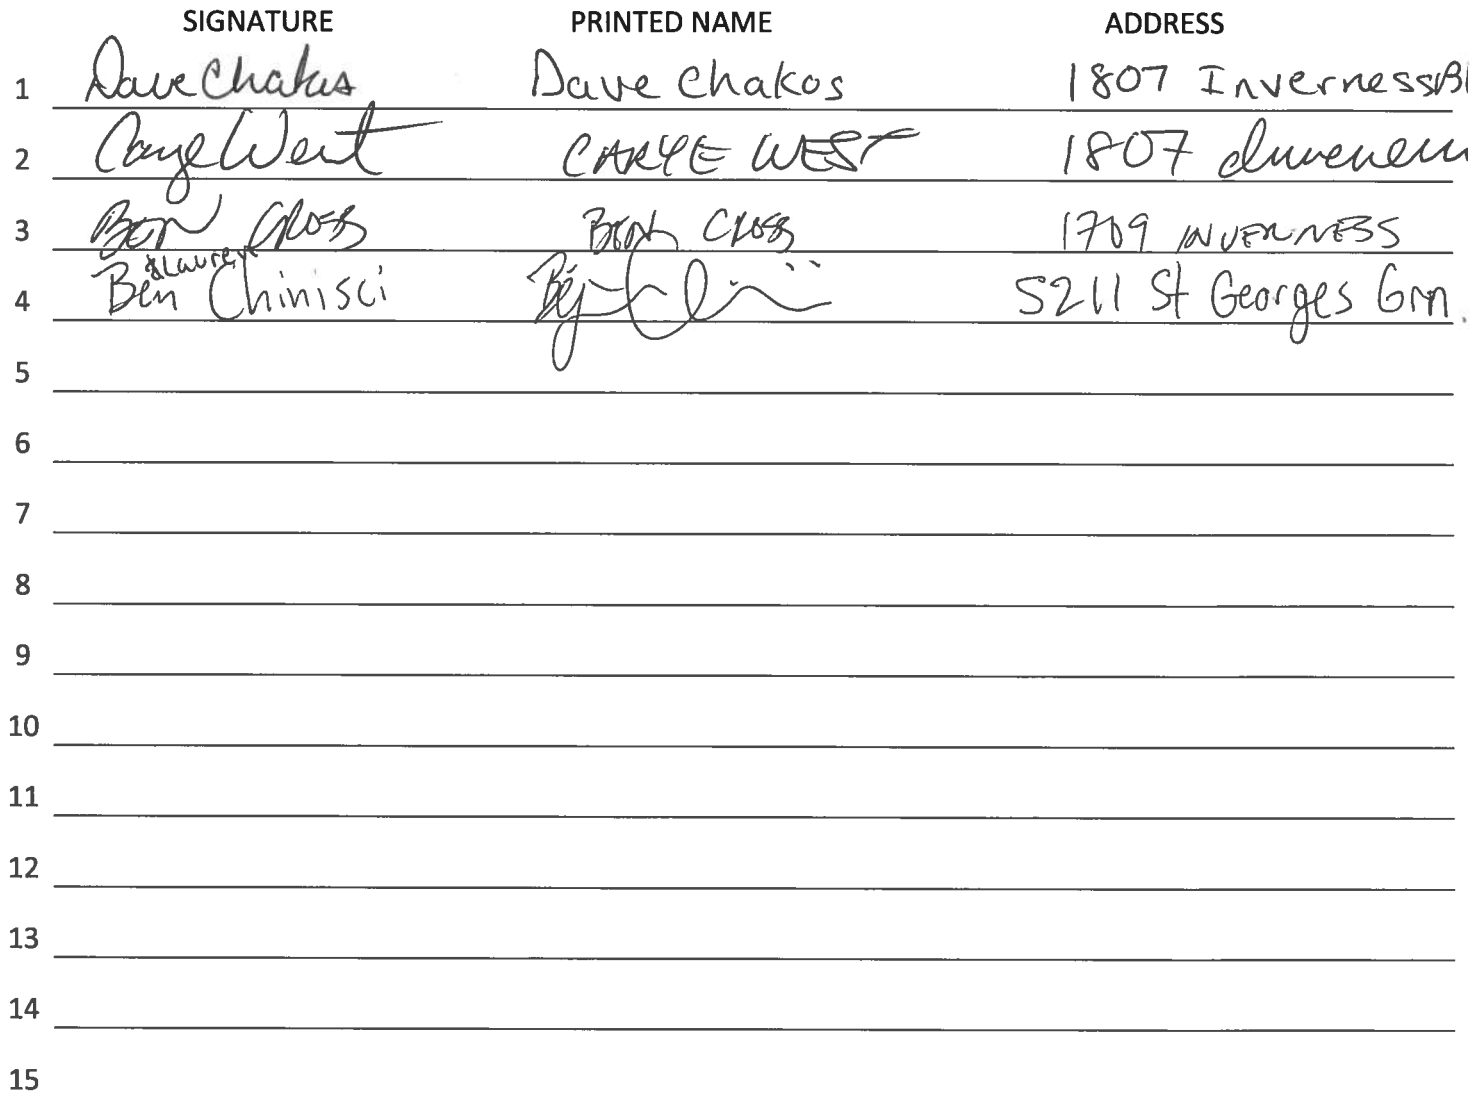 SIGNATURE PRINTED NAME ADDRESS
1 Dave Chakos Dave Chakos 1807 Inverness Bl
2 Carye West CARYE WEST 1807 Inverness
3 BEN CROSS BEN CROSS 1709 INVERNESS
& Lauren
4 Ben Chinisci 5211 St Georges Grn.
5
6
7
8
9
10
11
12
13
14
15